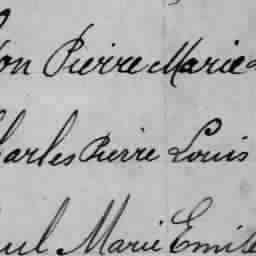 on Pierre Marie
harles Pierre Louis
ul Marie Emile